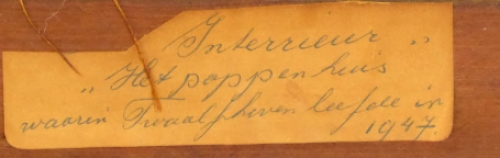 Interrieur "
„ Het poppenhuis
waarin Twaalfhoven leefde in
1947.